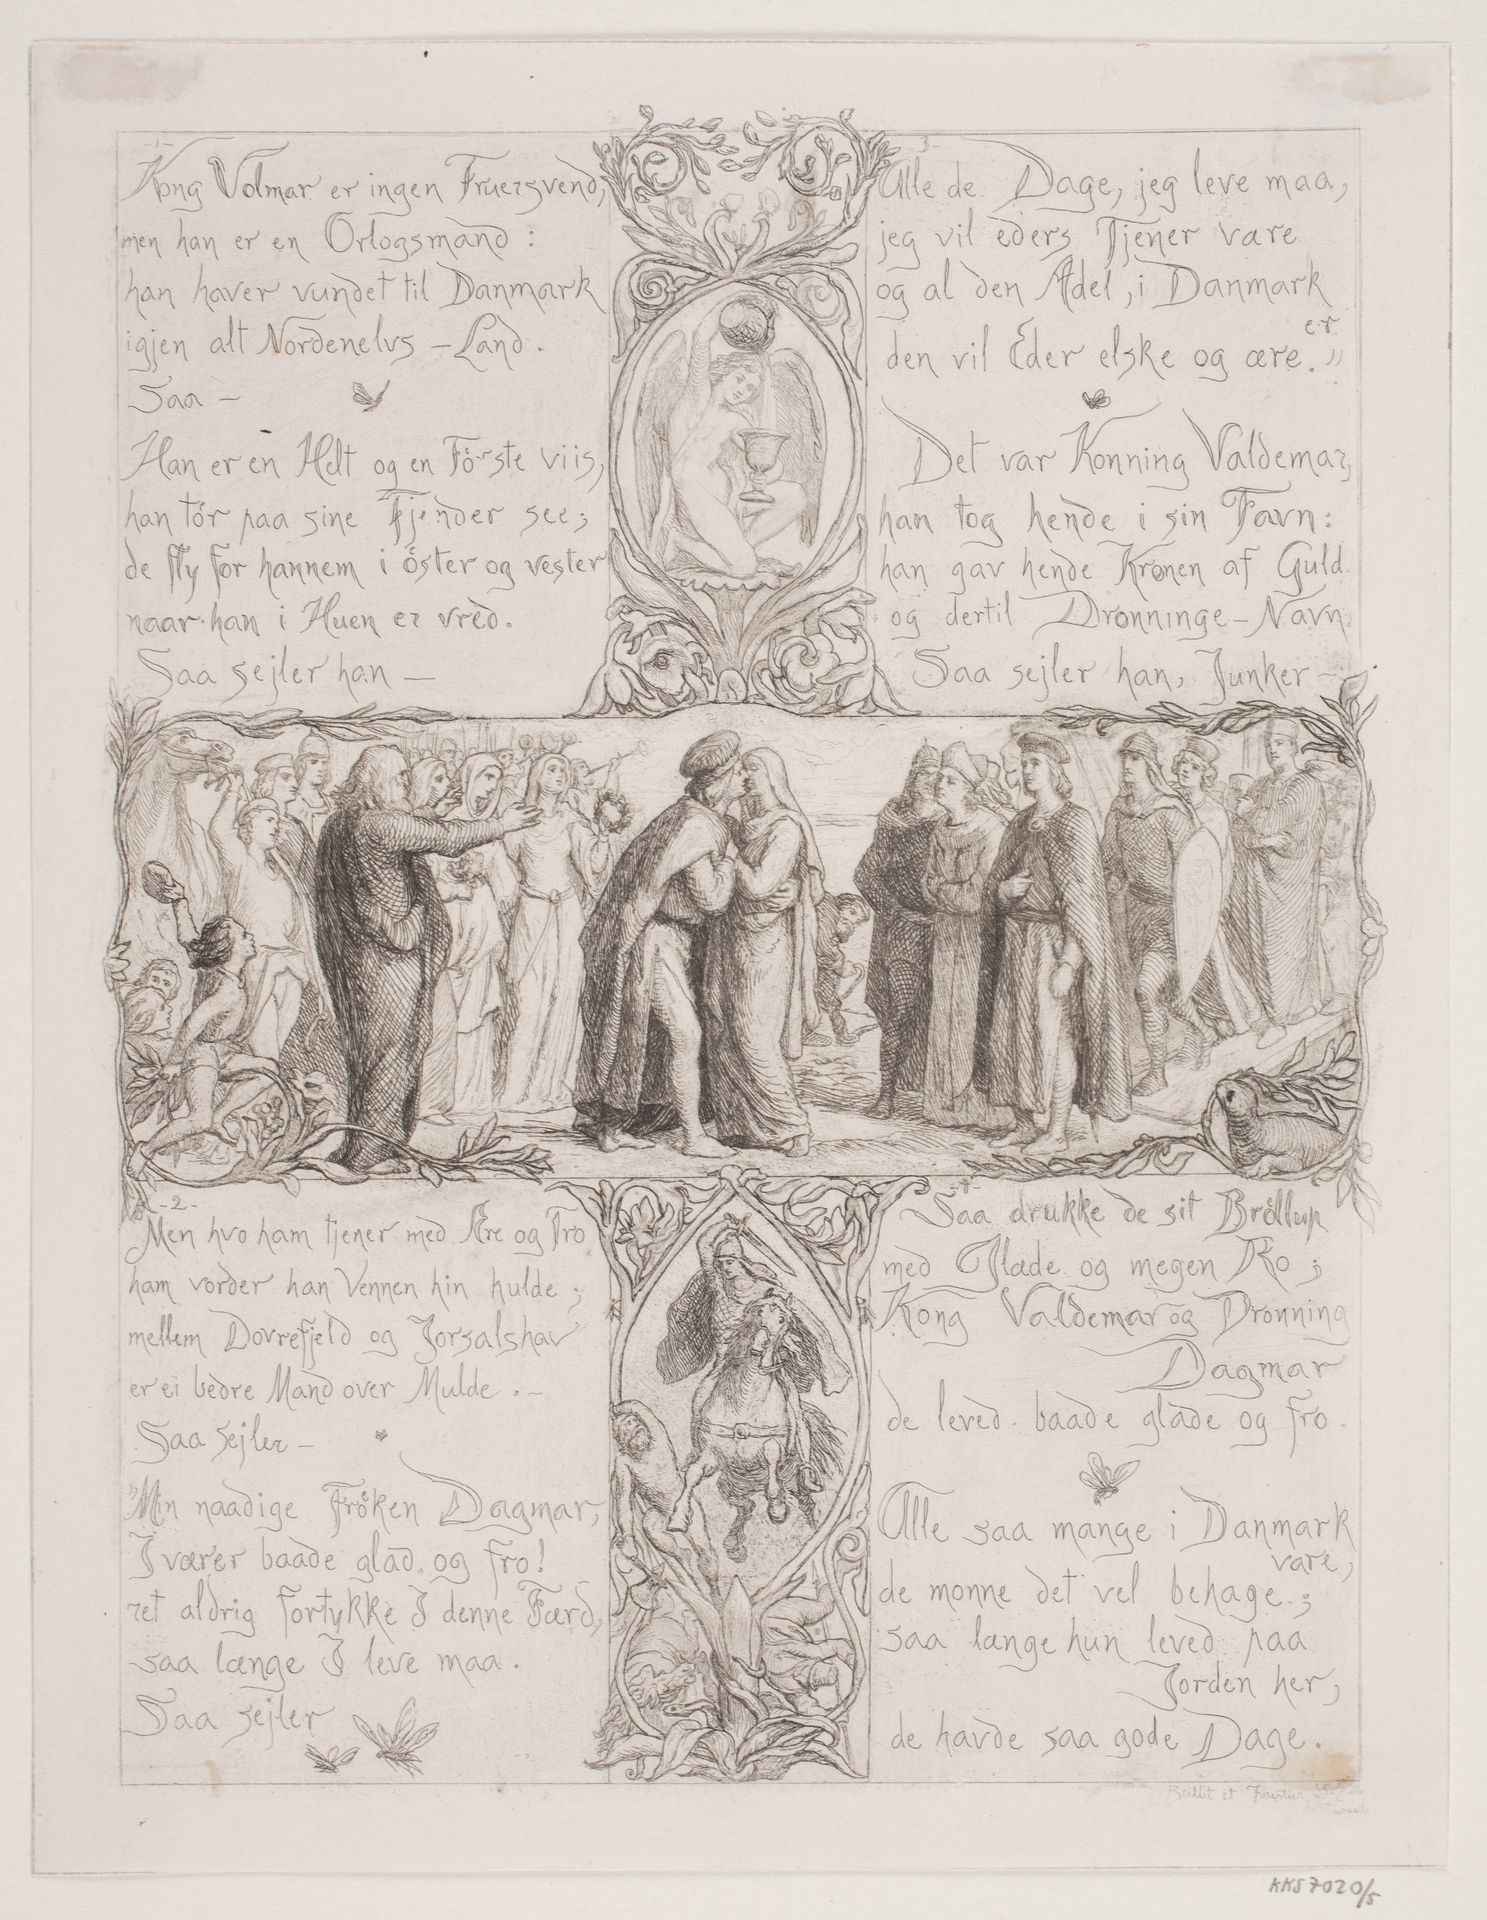 -1-
Kong Volmar er ingen Fruersvend,
men han er en Orlogsmand :
han haver vundet til Danmark
igjen alt Nordenelvs - Land.
Saa -
Han er en Helt og en Förste viis,
han tör paa sine Fjender see;
de fly for hannem i öster og vester
naar han i Huen er vred.
Saa sejler han —
-2-
Men hvo ham tjener med Ære og Tro
ham vorder han Vennen hin hulde ;
mellem Dovrefjeld og Jorsalshav
er ei bedre Mand over Mulde . -
Saa sejler -
"Min naadige Fröken Dagmar,
I værer baade glad og fro!
ret aldrig fortykke I denne Færd,
saa længe I leve maa .
Saa sejler
-3-
Alle de Dage, jeg leve maa,
jeg vil eders Tjener være
og al den Adel, i Danmark er
den vil Eder elske og ære."
Det var Konning Valdemar,
han tog hende i sin Favn:
han gav hende Kronen af Guld
og dertil Dronninge - Navn.
Saa sejler han, Junker -
-4-
Saa drukke de sit Bröllup
med Glæde og megen Ro ;
Kong Valdemar og Dronning
Dagmar
de leved baade glade og fro .
Alle saa mange i Danmark
vare,
de monne det vel behage ;
saa længe hun leved paa
Jorden her,
de havde saa gode Dage .
KKS7020/5